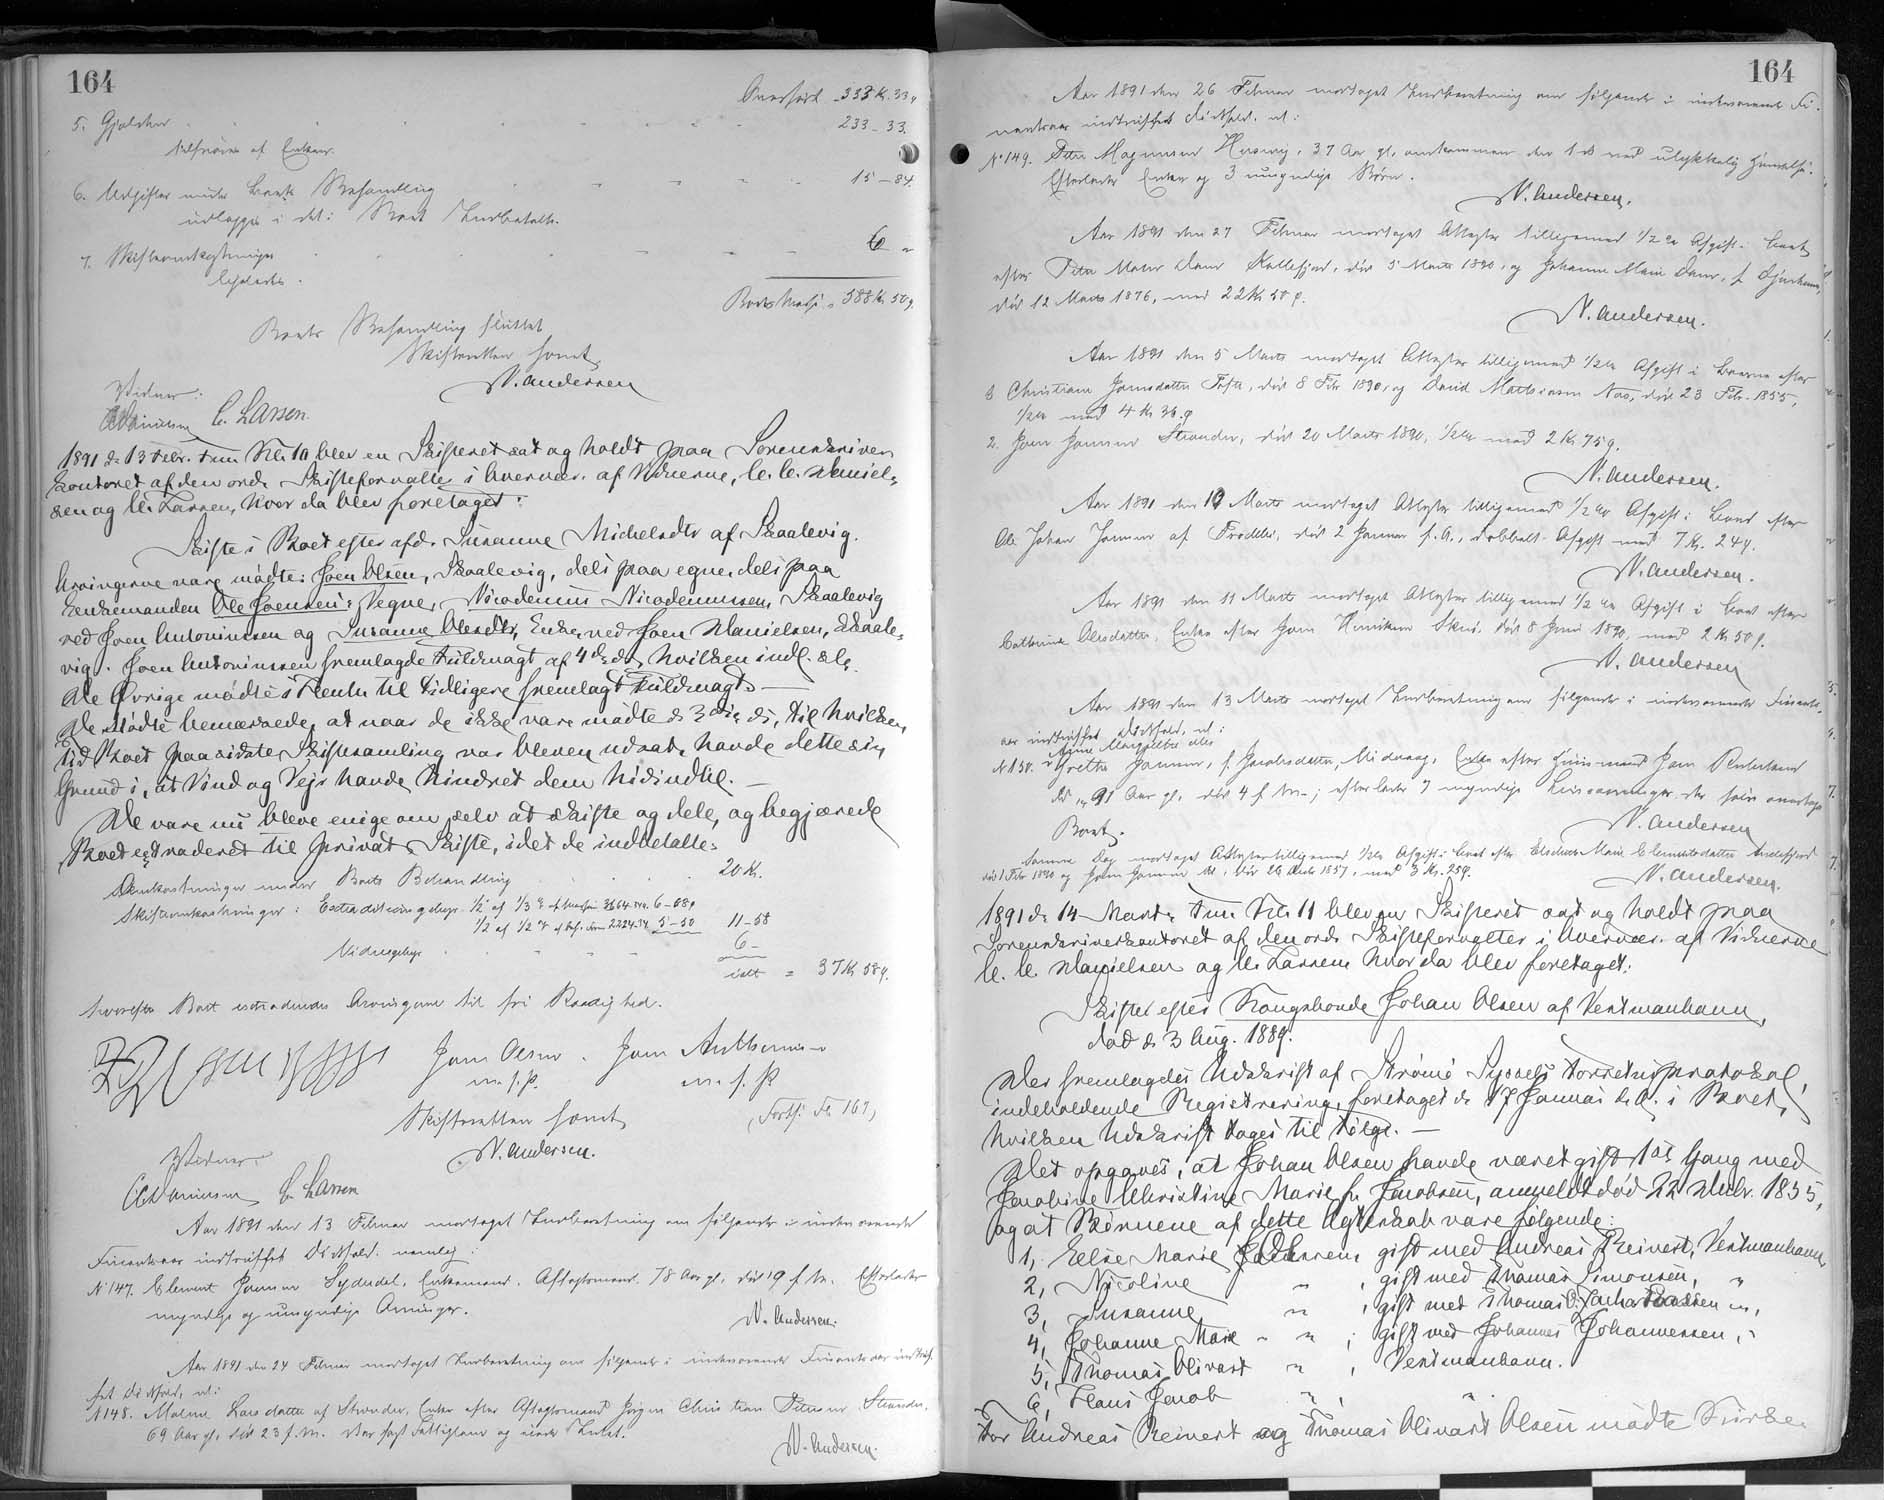 164
Overført 333 K. 33 ø
5. Gjælden 233 - 33.
tilsvares af Enken.
6. Udgifter under Boets Behandling 15 - 84.
udlagte i det: Boet Indbetalte.
7. Skifteomkostninger 6 "
ligeledes.
Boets Masse = 588 Kr 50 ø.
Boets Behandling sluttet
Skifteretten hævet
N. Andersen
Vidner:
C. Larsen
1891 d: 13 Febr. Fm. Kl. 10 blev en Skifteret sat og holdt paa Sorenskriver
kontoret af den ord. Skifteforvalter i Overvær. af Vidnerne, C. C. Daniel-
sen og C. Larsen, hvor da blev foretaget:
Skifte i Boet efter afd. Susanne Michelsdtr af Skaalevig.
Arvingerne vare mødte: Joen Olsen, Skaalevig, dels paa egne, dels paa
Enkemanden Ole Joensens Vegne, Nicodemus Nicodemussen, Skaalevig
ved Joen Antoniussen og Susanne Olesdtr, Enke, ved Joen Danielsen, Skaale-
vig. Joen Antoniussen fremlagde Fuldmagt af 4 ds., hvilken indl.
De Øvrige mødte i Henh. til tidligere fremlagt Fuldmagt.
De Mødte bemærkede, at naar de ikke vare mødte d. 3die ds, til hvilken
Tid Boet paa sidste Skiftesamling var bleven udsat, havde dette sin
Grund i, at Vind og Vejr havde hindret dem hidindtil.
De vare nu bleve enige om selv at skifte og dele, og begjærede
Boet extraderet til privat Skifte, idet de indbetalte:
Omkostninger under Boets Behandling 20 Kr.
Skifteomkostninger: Extraditionsgebyr 1/2 af 1/3 % af Massen 3664 6 - 08 ø
1/2 af 1/2 % af 2224.34 5 - 50 11 - 58
Vidnegebyr 6 -
ialt = 37 Kr 58 ø.
hvorefter Boet extraderedes Arvingerne til fri Raadighed.
Joen Olsen. Joen Anthoniussen
m. f. P. m. f. P.
Skifteretten hævet (Forts: Fl. 167)
N. Andersen.
Vidner:
C. Larsen
Aar 1891 den 13 Februar modtaget Indberetning om følgende i indeværende
Finantsaar indtruffet Dødsfald. nemlig:
No 147. Clement Jensen Syderdal, Enkemand, Aftægtsmand. 78 Aar gl., død 9 f. M. Efterlader
myndige og umyndige Arvinger.
N. Andersen.
Aar 1891 den 24 Februar modtaget Indberetning om følgende i indeværende Finantsaar indtruf-
fet Dødsfald, nl:
No 148. Malene Larsdatter af Strander, Enke efter Aftægtsmand Jørgen Christian Petersen Strander,
69 Aar gl., død 23 f. M. Var sat Fattiglem og intet Indst.
N. Andersen.
164
Aar 1891 den 26 Februar modtaget Indberetning om følgende i indeværende Fi-
nantsaar indtruffet Dødsfald. nl:
No 149. Peter Magnussen Husevig, 37 Aar gl., omkommen den 1 ds ved ulykkelig Hændelse.
Efterlader Enke og 3 umyndige Børn.
N. Andersen.
Aar 1891 den 27 Februar modtaget Attester tilligemed 1/2 % Afgift i Boet
efter Peter Mater Dam Kollefjord, død 5 Marts 1890, og Johanne Marie Dam, f.
død 12 Marts 1876, med 22 Kr 50 ø.
N. Andersen.
Aar 1891 den 5 Marts modtaget Attester tilligemed 1/2 % Afgift i Boerne efter
1 Christiane Joensdatter Toftе, død 8 Febr 1890, og David Mortensen Næs, død 23 Febr. 1855,
1/2 % med 4 Kr 36 ø
2. Joen Joensen Strander, død 20 Marts 1890, 1/2 % med 2 Kr 75 ø.
N. Andersen.
Aar 1891 den 10 Marts modtaget Attester tilligemed 1/2 % Afgift i Boet efter
Ole Johan Joensen af Frodebø, død 2 Januar f. A., dobbelt Afgift med 7 Kr. 24 ø.
N. Andersen.
Aar 1891 den 11 Marts modtaget Attester tilligemed 1/2 % Afgift i Boet efter
Cathrine Olesdatter, Enke efter Joen Henriksen død 8 Juni 1890, med 2 Kr 50 ø.
N. Andersen
Aar 1891 den 13 Marts modtaget Indberetning om følgende i indeværende Finants-
aar indtruffet Dødsfald, nl:
Anne Margrethe eller
No 150. Grethe Joensen, f. Jacobsdatter, Midvaag, Enke efter Huusmand Joen
91 Aar gl., død 4 f. M.; efterlader 7 myndige Livsarvinger der selv overtage
Boet.
N. Andersen
Samme Dag modtaget Attester tilligemed 1/2 % Afgift i Boet efter Elsebeth Marie Clementsdatter Andefjord
død 1 Febr 1890 og Joen Joensen , død 26 Decb 1857, med 3 Kr. 25 ø.
N. Andersen.
1891 d: 14 Marts Fm. Kl. 11 blev en Skifteret sat og holdt paa
Sorenskriverkontoret af den ord. Skifteforvalter i Overvær. af Vidnerne
C. C. Danielsen og C. Larsen, hvor da blev foretaget:
Skifte efter Kongsbonde Johan Olsen af Vestmanhavn,
død d. 3 Aug. 1889.
Der fremlagdes Udskrift af Strømø Syssels Forretnsprotokol,
indeholdende Registrering, foretaget d. 17 Januar d. A. i Boet,
hvilken Udskrift tages til Følge.
Det opgaves, at Johan Olsen havde været gift 1ste Gang med
Jacobine Christine Marie f. Jacobsen, anmeldt død 22 Decbr. 1855,
og at Børnene af dette Ægteskab vare følgende:
1, Else Marie Olsen, gift med Andreas Reinert, Vestmanhavn,
2, Nicoline " , gift med Thomas Simonsen, "
3, Susanne " , gift med Thomas
4, Johanne Marie " " , gift med Johannes Johannessen, "
5, Thomas Olivard " , Vestmanhavn.
6, Hans Jacob " , " .
For Andreas Reinert og Thomas Olivard Olsen mødte Kirke-